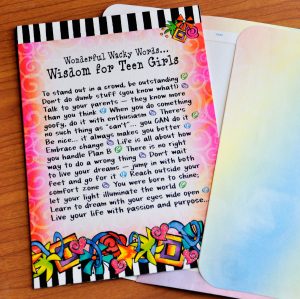 Wonderful Wacky Words...
Wisdom for Teen Girls
To stand out in a crowd, be outstanding
Don't do dumb stuff (you know what!)
Talk to your parents — they know more
than you think When you do something
goofy, do it with enthusiasm There's
no such thing as "can't"... you CAN do it
Be nice... it always makes you better
Embrace change Life is all about how
you handle Plan B There is no right
way to do a wrong thing Don't wait
to live your dreams — jump in with both
feet and go for it Reach outside your
comfort zone You were born to shine;
let your light illuminate the world
Learn to dream with your eyes wide open
Live your life with passion and purpose...